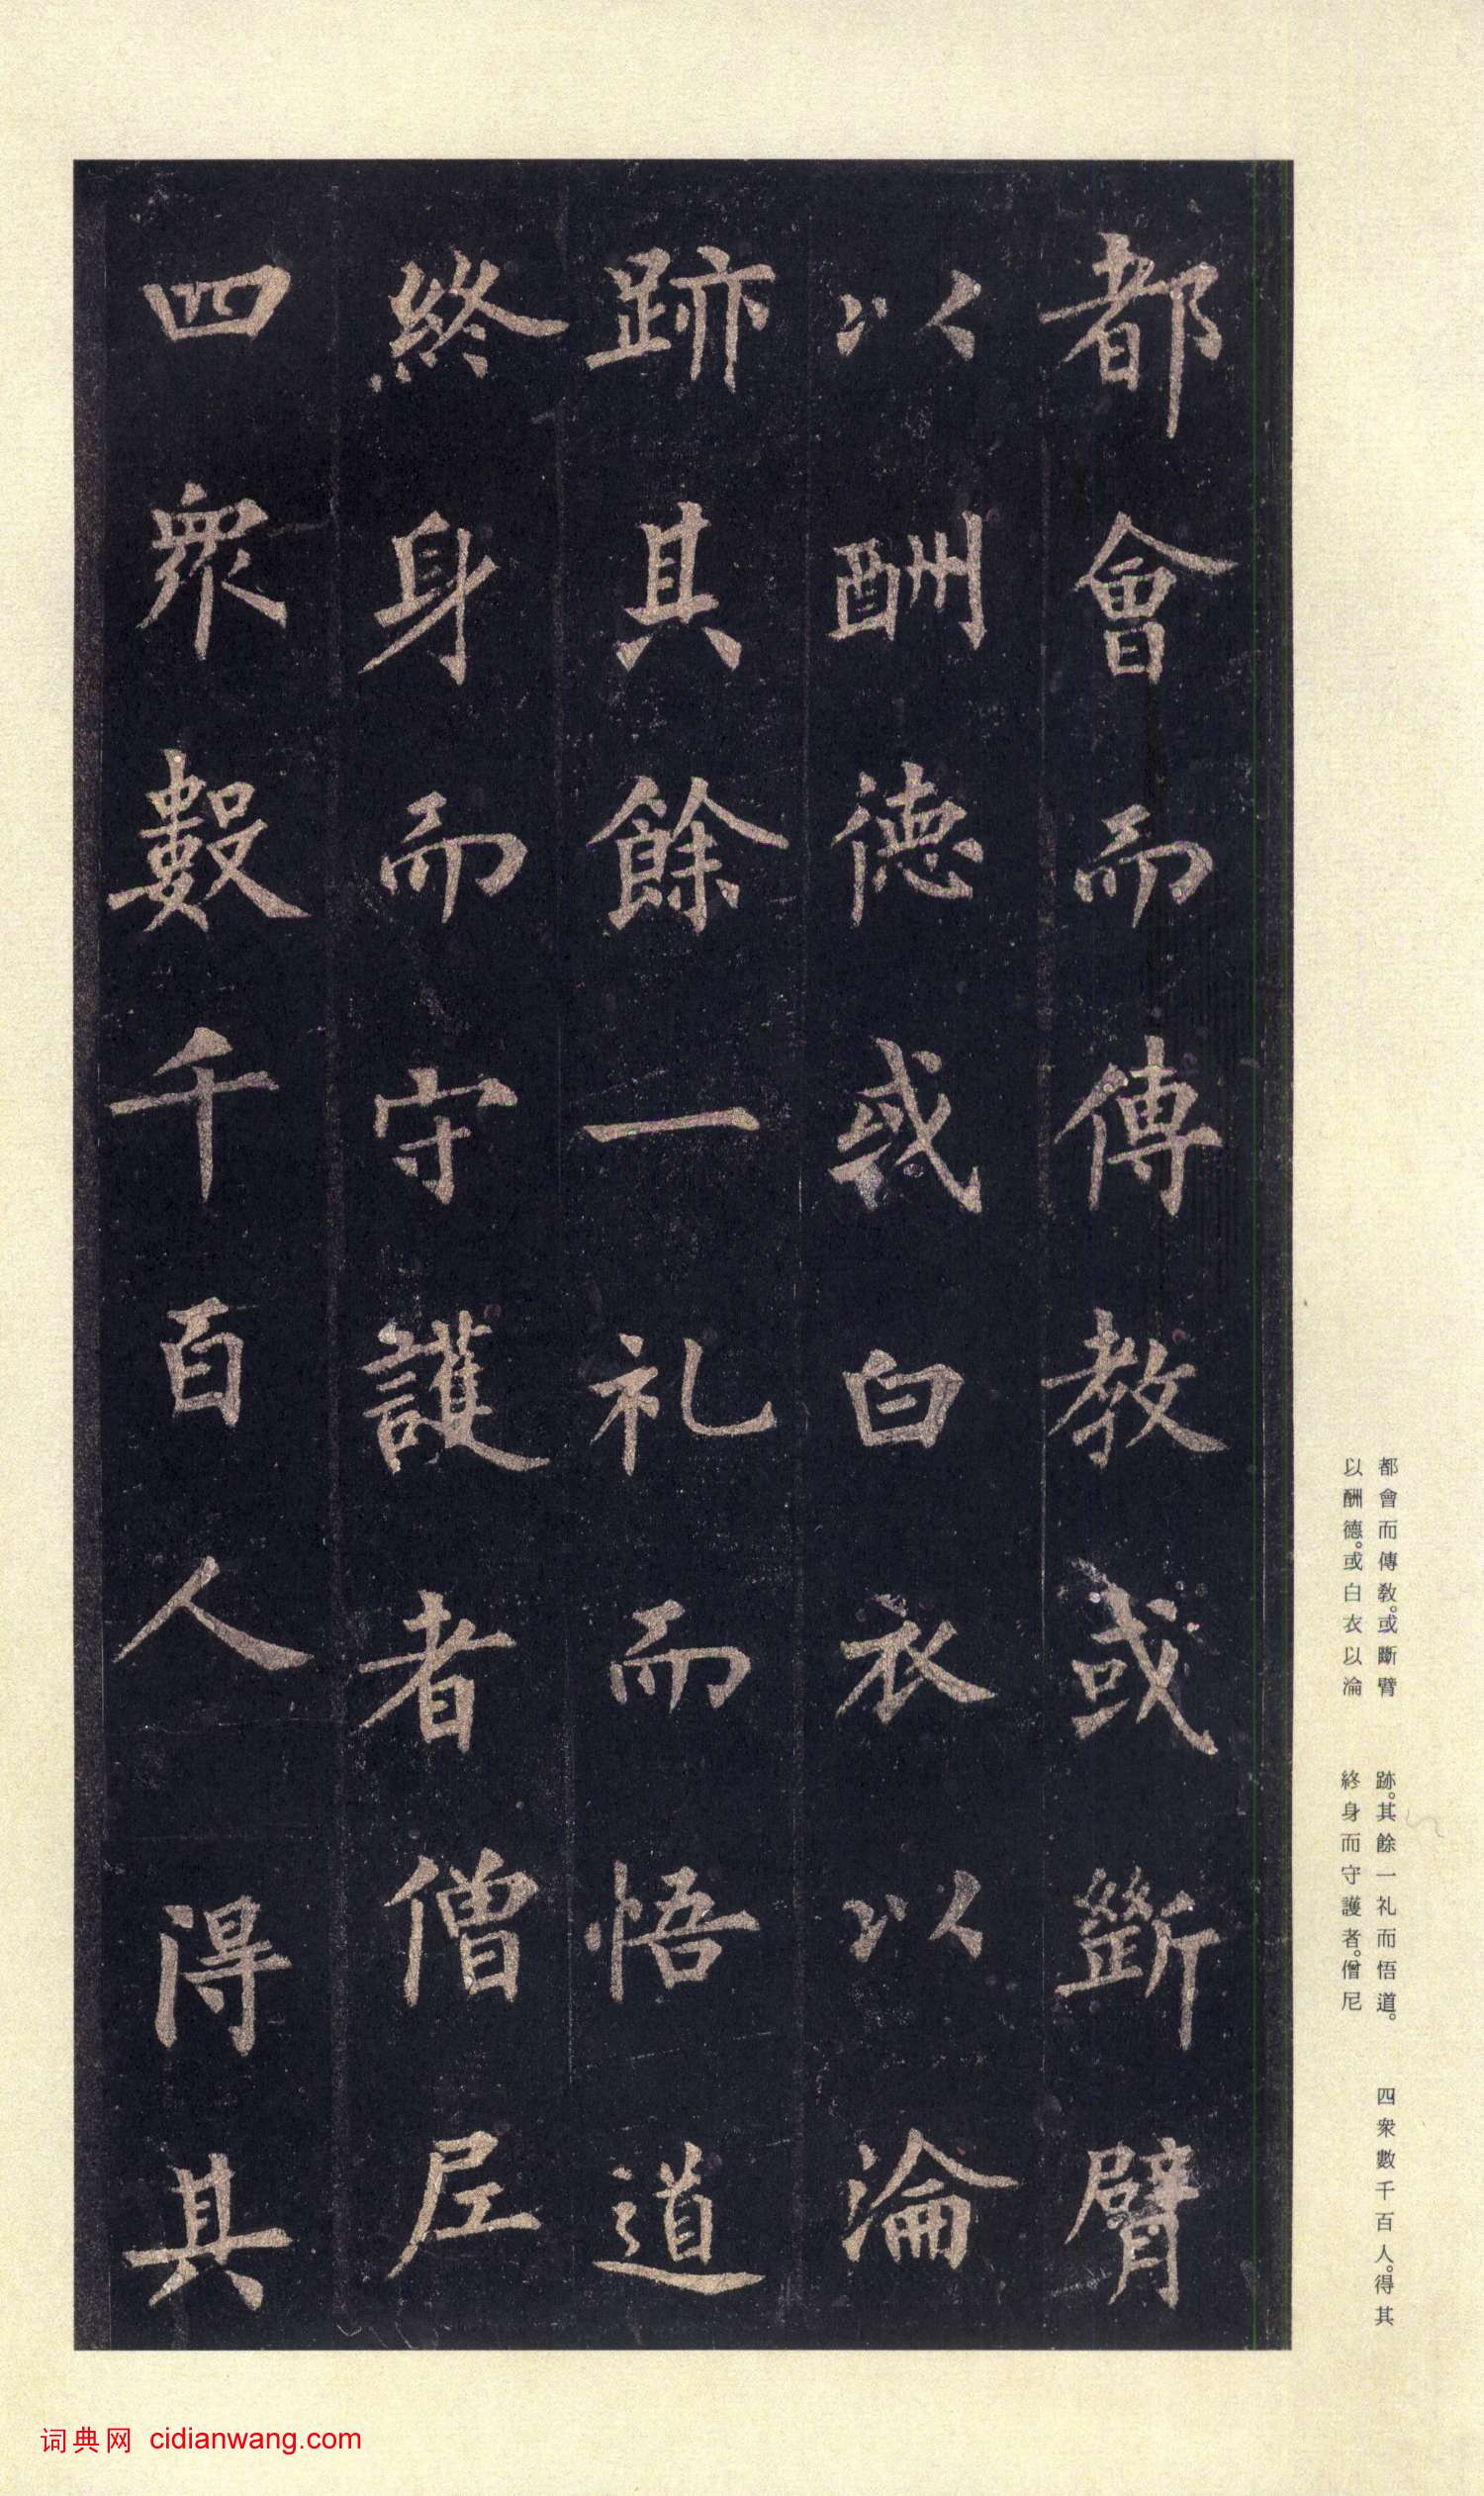 都會而傳教或斷臂
以酬德或白衣以淪
跡其餘一礼而悟道
終身而守護者僧尼
四衆數千百人得其
都會而傳教。或斷臂
以酬德。或白衣以淪
跡。其餘一礼而悟道。
終身而守護者。僧尼
四衆數千百人。得其
词典网 cidianwang.com